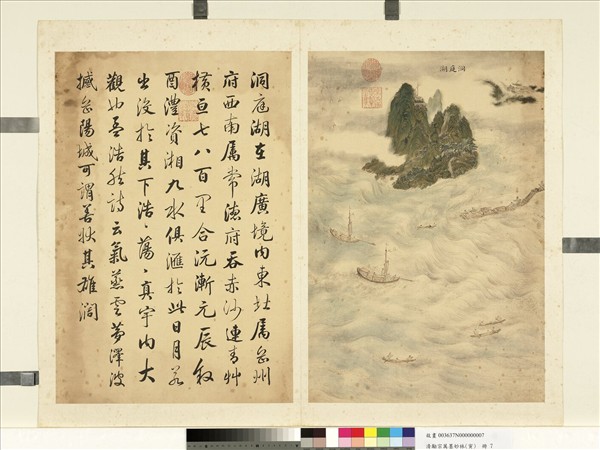 洞庭湖在湖廣境內東北屬岳州
府西南屬常德府吞赤沙連青艸
橫亘七八百里合沅漸元辰敘
酉澧資湘九水俱滙於此日月若
出沒於其下浩〻蕩〻真宇內大
觀也孟浩然詩云氣蒸雲夢澤波
撼岳陽城可謂善狀其雄濶
洞庭湖
故畫 003637N000000007